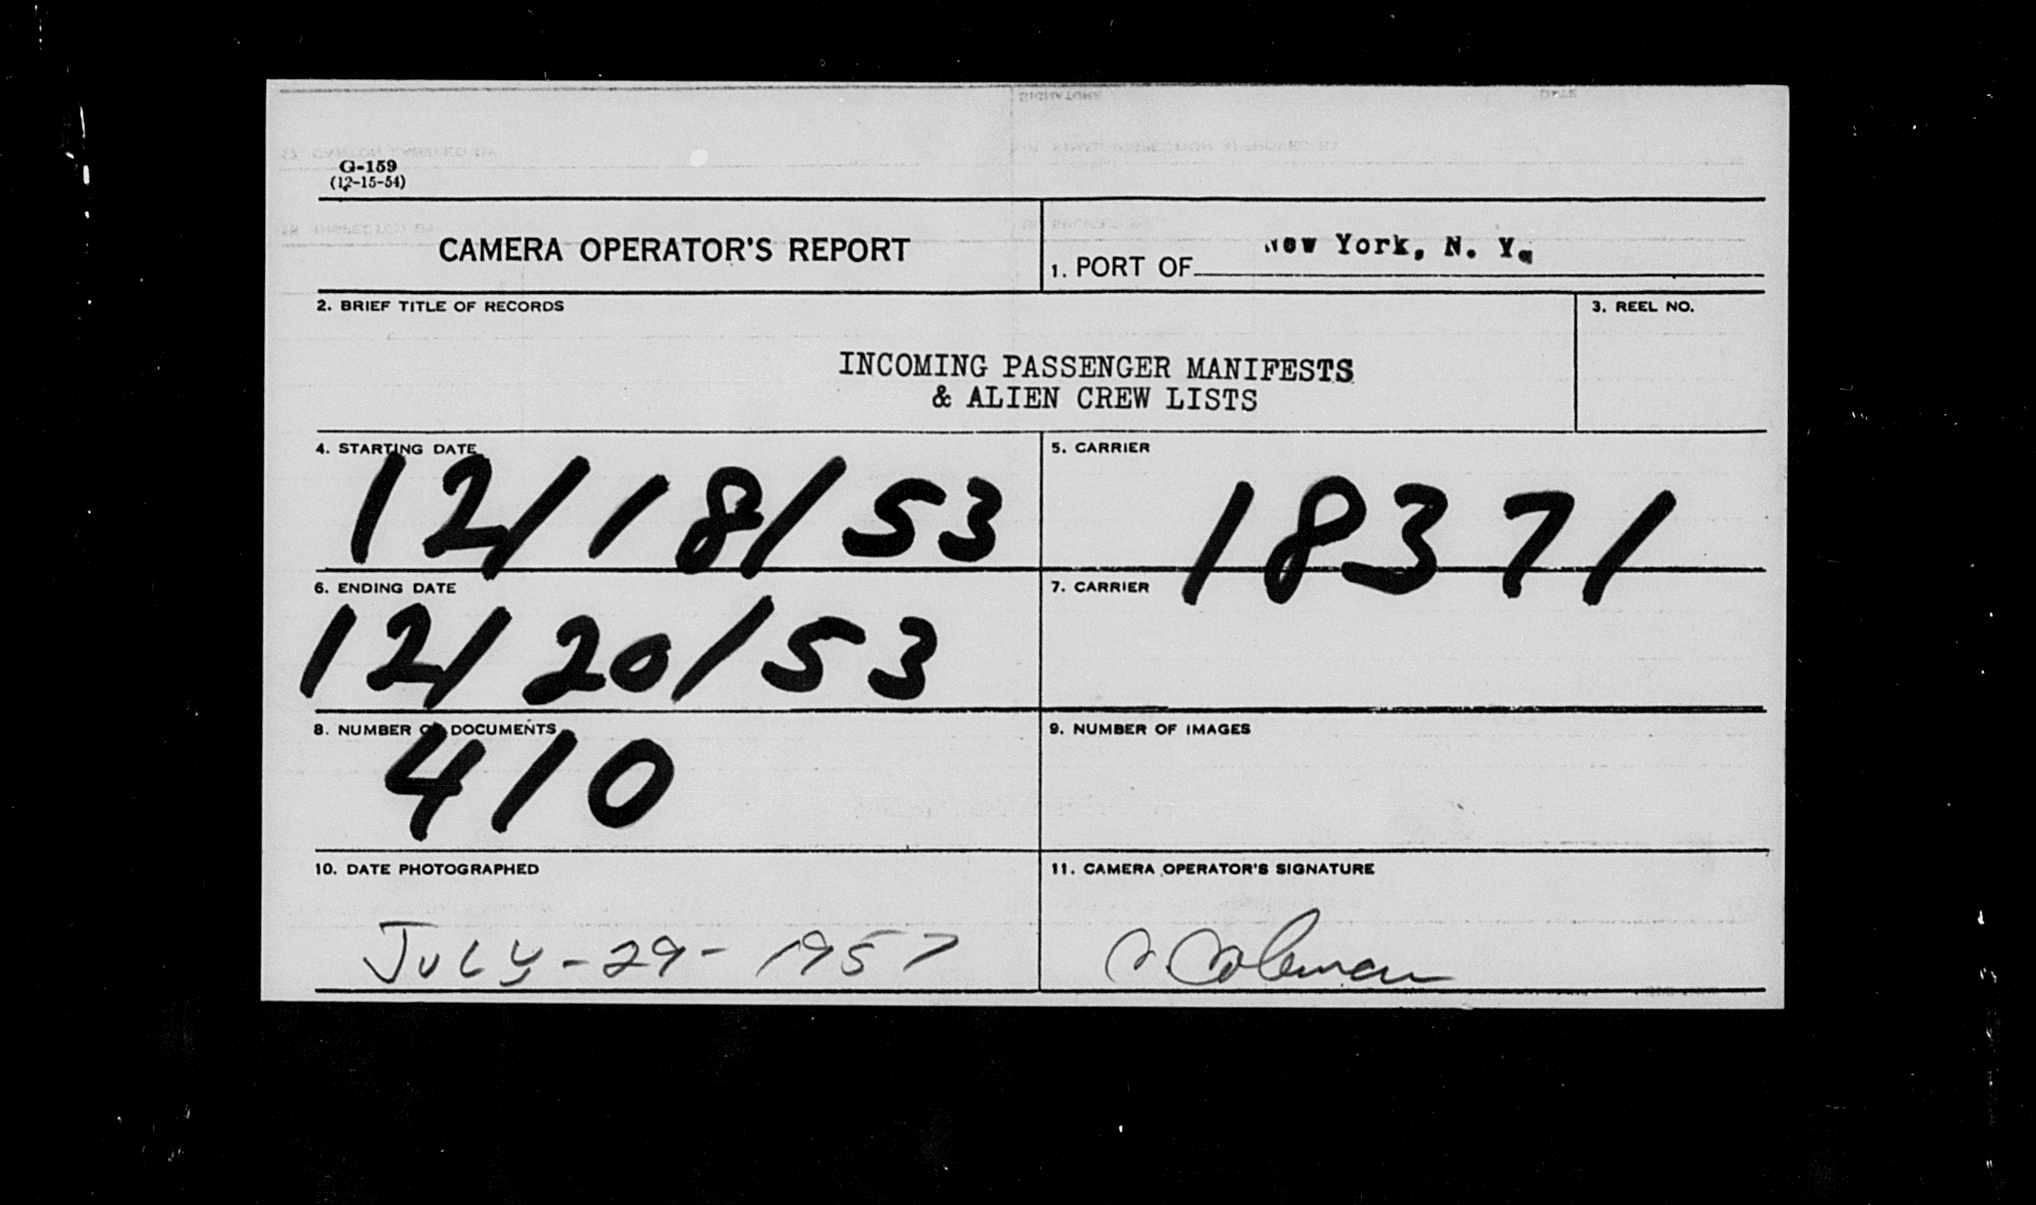 G-159
(12-15-54)
CAMERA OPERATOR'S REPORT
1. PORT OF New York, N. Y.
2. BRIEF TITLE OF RECORDS
3. REEL NO.
INCOMING PASSENGER MANIFESTS
& ALIEN CREW LISTS
4. STARTING DATE
12/18/53
5. CARRIER
18371
6. ENDING DATE
12/20/53
7. CARRIER
8. NUMBER OF DOCUMENTS
410
9. NUMBER OF IMAGES
10. DATE PHOTOGRAPHED
JULY-29-1957
11. CAMERA OPERATOR'S SIGNATURE
Coleman